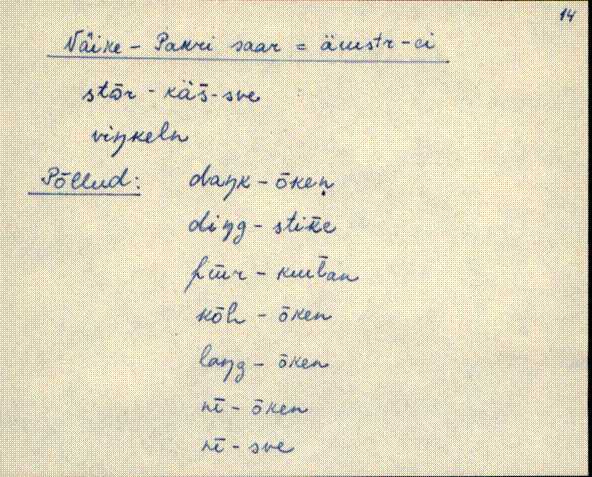 14
Väike - Pakri saar = äustr - ei
stōr - käš - sve
viŋkeln
Põllud: daŋk - ōken
diŋg - stik̄e
kōh - ōken
laŋg - ōken
nī - ōken
nī - sve